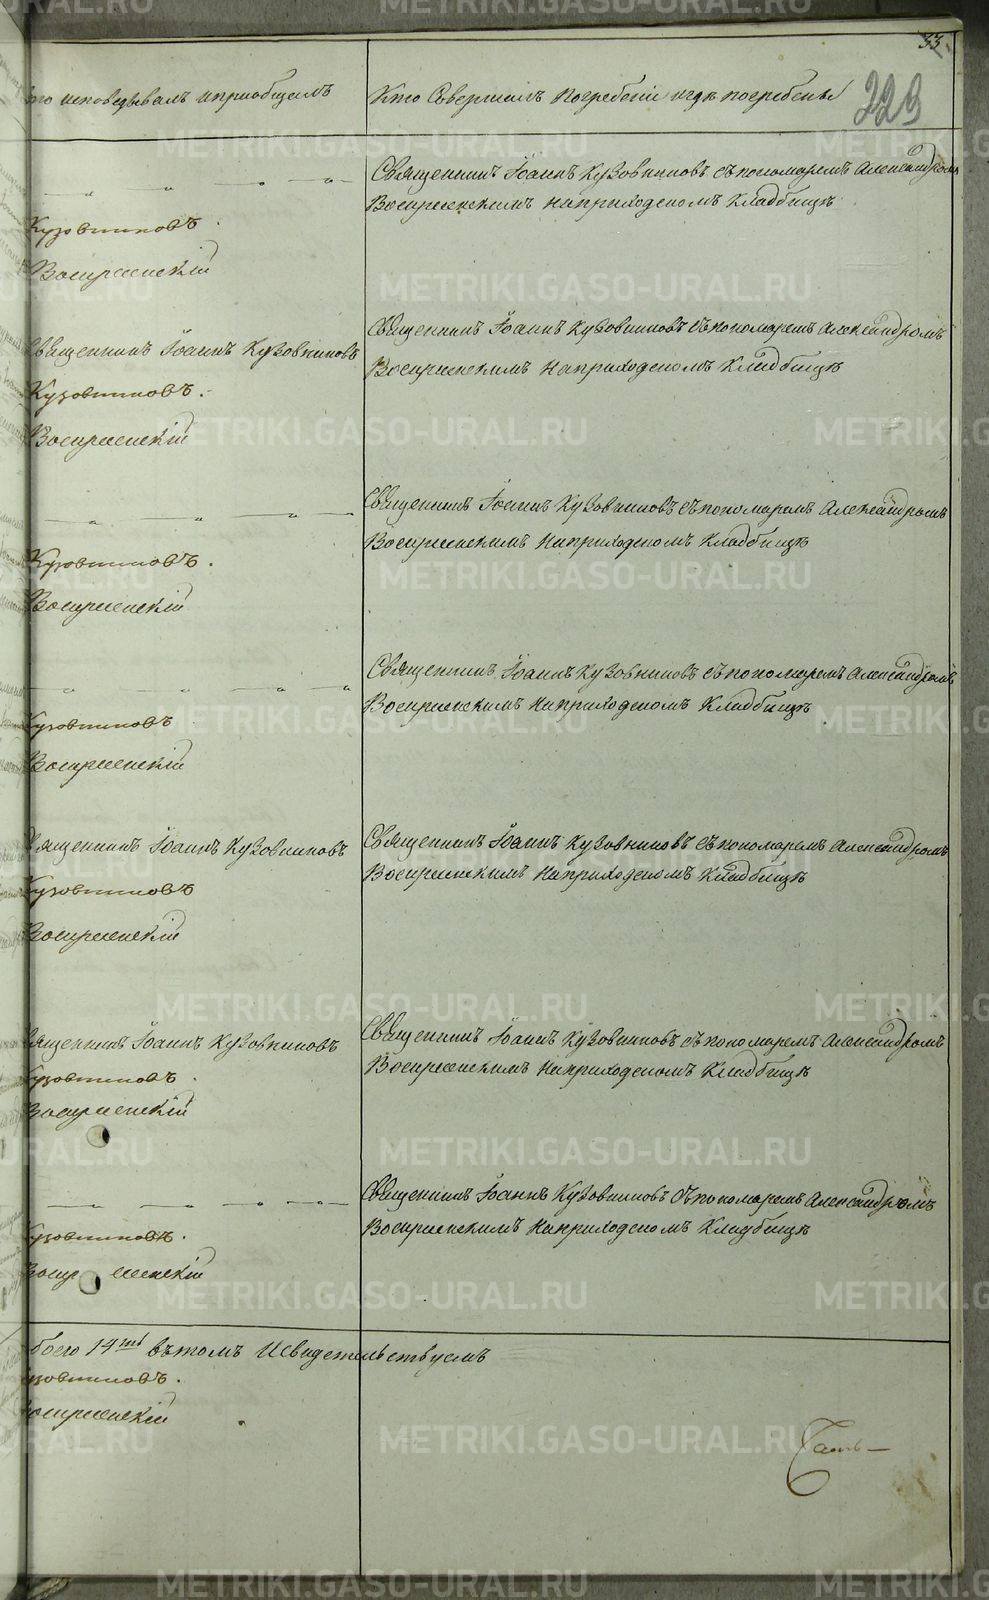 33
229
кто исповедывалъ иприобщалъ
Кто Совершалъ Погребеніе игдѣ погребены
Священникъ Іоаннъ Кузовниковъ съ пономаремъ Александромъ
Воскресенскимъ На приходскомъ Кладбищѣ
Кузовниковъ.
Воскресенскій
Священникъ Іоаннъ Кузовниковъ
Кузовниковъ.
Воскресенскій
Священникъ Іоаннъ Кузовниковъ съ пономаремъ Александромъ
Воскресенскимъ На приходскомъ Кладбищѣ
Священникъ Іоаннъ Кузовниковъ съ пономаремъ Александромъ
Воскресенскимъ На приходскомъ Кладбищѣ
Кузовниковъ.
Воскресенскій
Священникъ Іоаннъ Кузовниковъ съ пономаремъ Александромъ
Воскресенскимъ На приходскомъ Кладбищѣ
Кузовниковъ
Воскресенскій
Священникъ Іоаннъ Кузовниковъ
Кузовниковъ
Воскресенскій
Священникъ Іоаннъ Кузовниковъ съ пономаремъ Александромъ
Воскресенскимъ На приходскомъ Кладбищѣ
Священникъ Іоаннъ Кузовниковъ
Кузовниковъ.
Воскресенскій
Священникъ Іоаннъ Кузовниковъ съ пономаремъ Александромъ
Воскресенскимъ На приходскомъ Кладбищѣ
Священникъ Іоаннъ Кузовниковъ съ пономаремъ Александромъ
Воскресенскимъ На приходскомъ Кладбищѣ
Кузовниковъ.
Воскресенскій
боего 14 въ томъ И свидетельствуемъ
Кузовниковъ.
Воскресенскій
METRIKI.GASO-URAL.RU